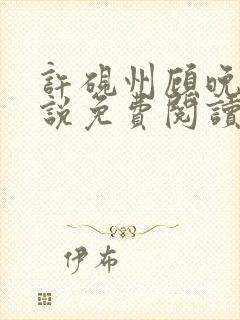 許硯州顧晚
說免費閱讀
伊布